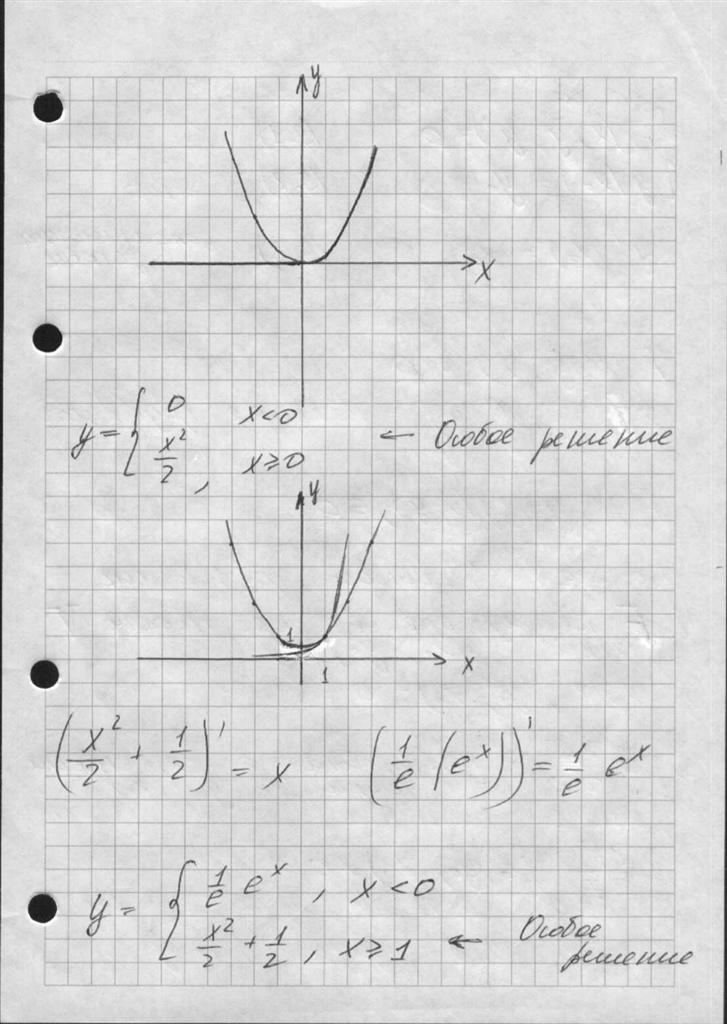 y
x
y = { 0 x<0
x²/2 , x≥0 ← Особое решение
y
1
x
1
(x²/2 + 1/2)' = x (1/e (eˣ))' = 1/e eˣ
y = { 1/e eˣ , x<0
x²/2 + 1/2 , x≥1 ← Особое
решение